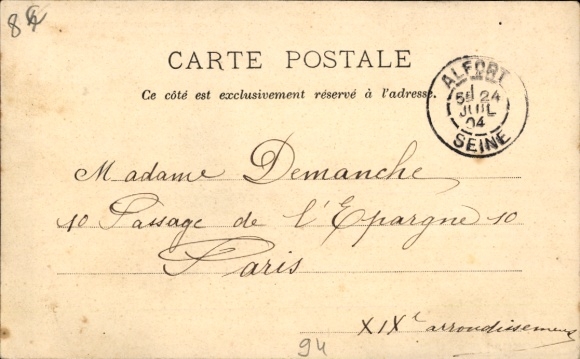 CARTE POSTALE
Ce côté est exclusivement réservé à l'adresse.
ALFORT
5E 24
JUIL
04
SEINE
Madame Demanche
10 Passage de l'Epargne 10
Paris
XIXe arrondissement
94